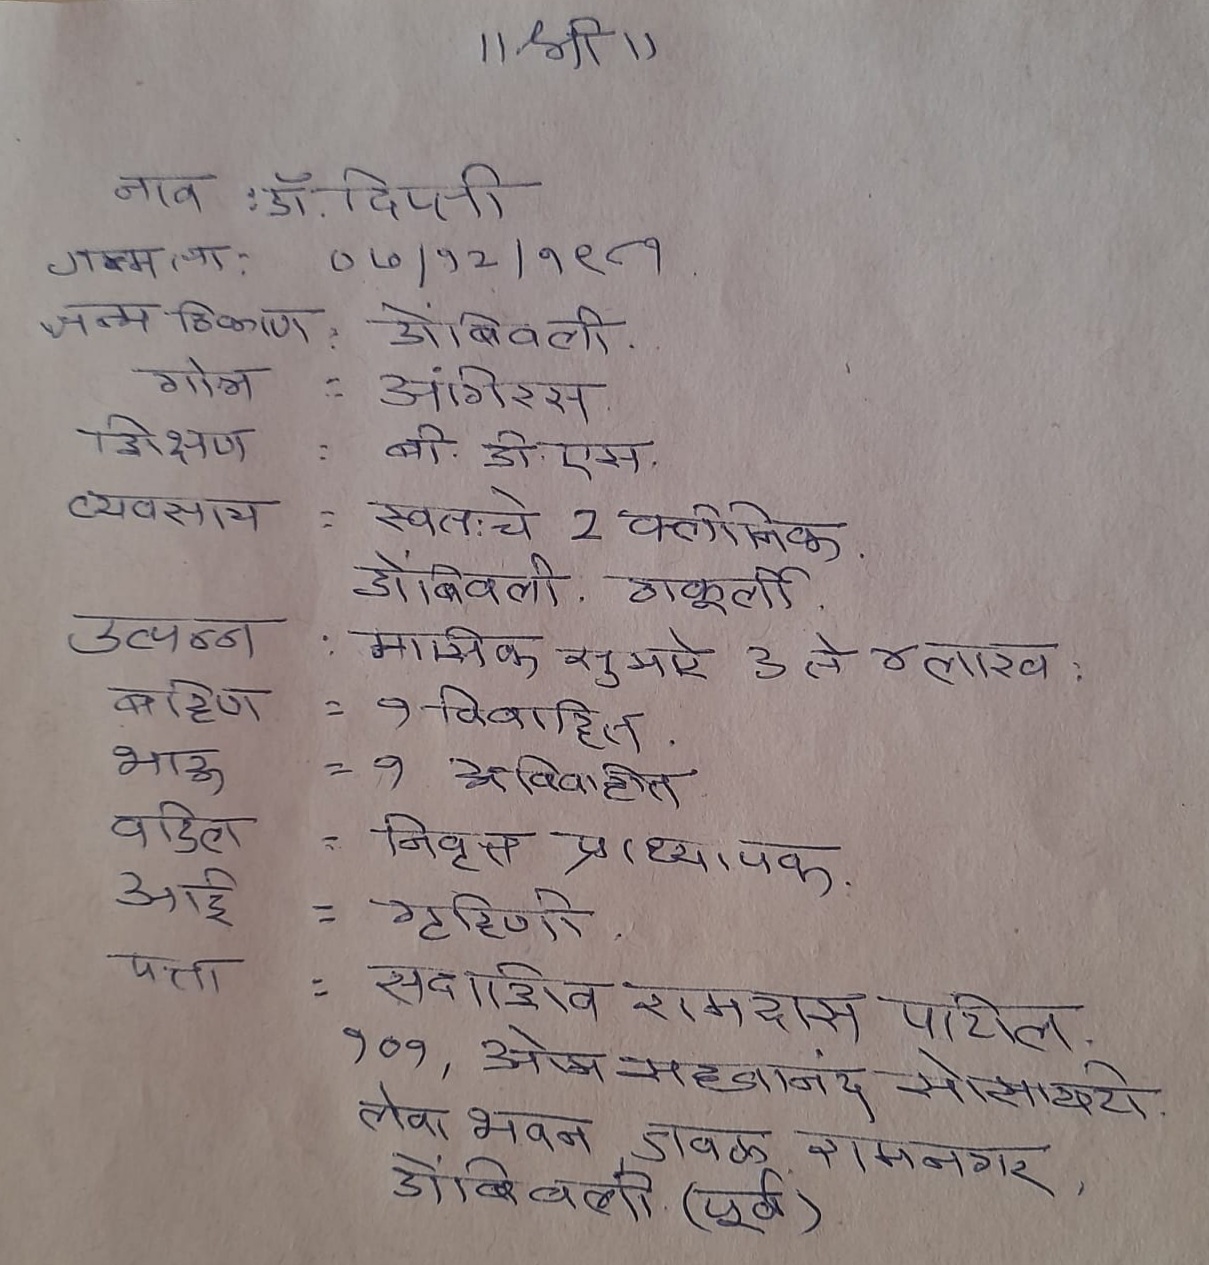 ॥ श्री ॥
नाव : डॉ. दिप्ती
जन्म ता: ०७/१२/१९८१
जन्म ठिकाण : डोंबिवली.
गोत्र = अंगिरस
शिक्षण : बी. डी. एस.
व्यवसाय = स्वतःचे 2 क्लीनिक.
डोंबिवली. ठाकूर्ली.
उत्पन्न : मासिक सुमारे 3 ते ४ लाख :
बहिण = १ विवाहित.
भाऊ = १ अविवाहीत
वडिल = निवृत्त प्राध्यापक.
आई = गृहिणी.
पत्ता = सदाशिव रामदास पाटील.
१०१, ओम सहजानंद सोसायटी.
लेवा भवन जवळ, रामनगर,
डोंबिवली (पूर्व)